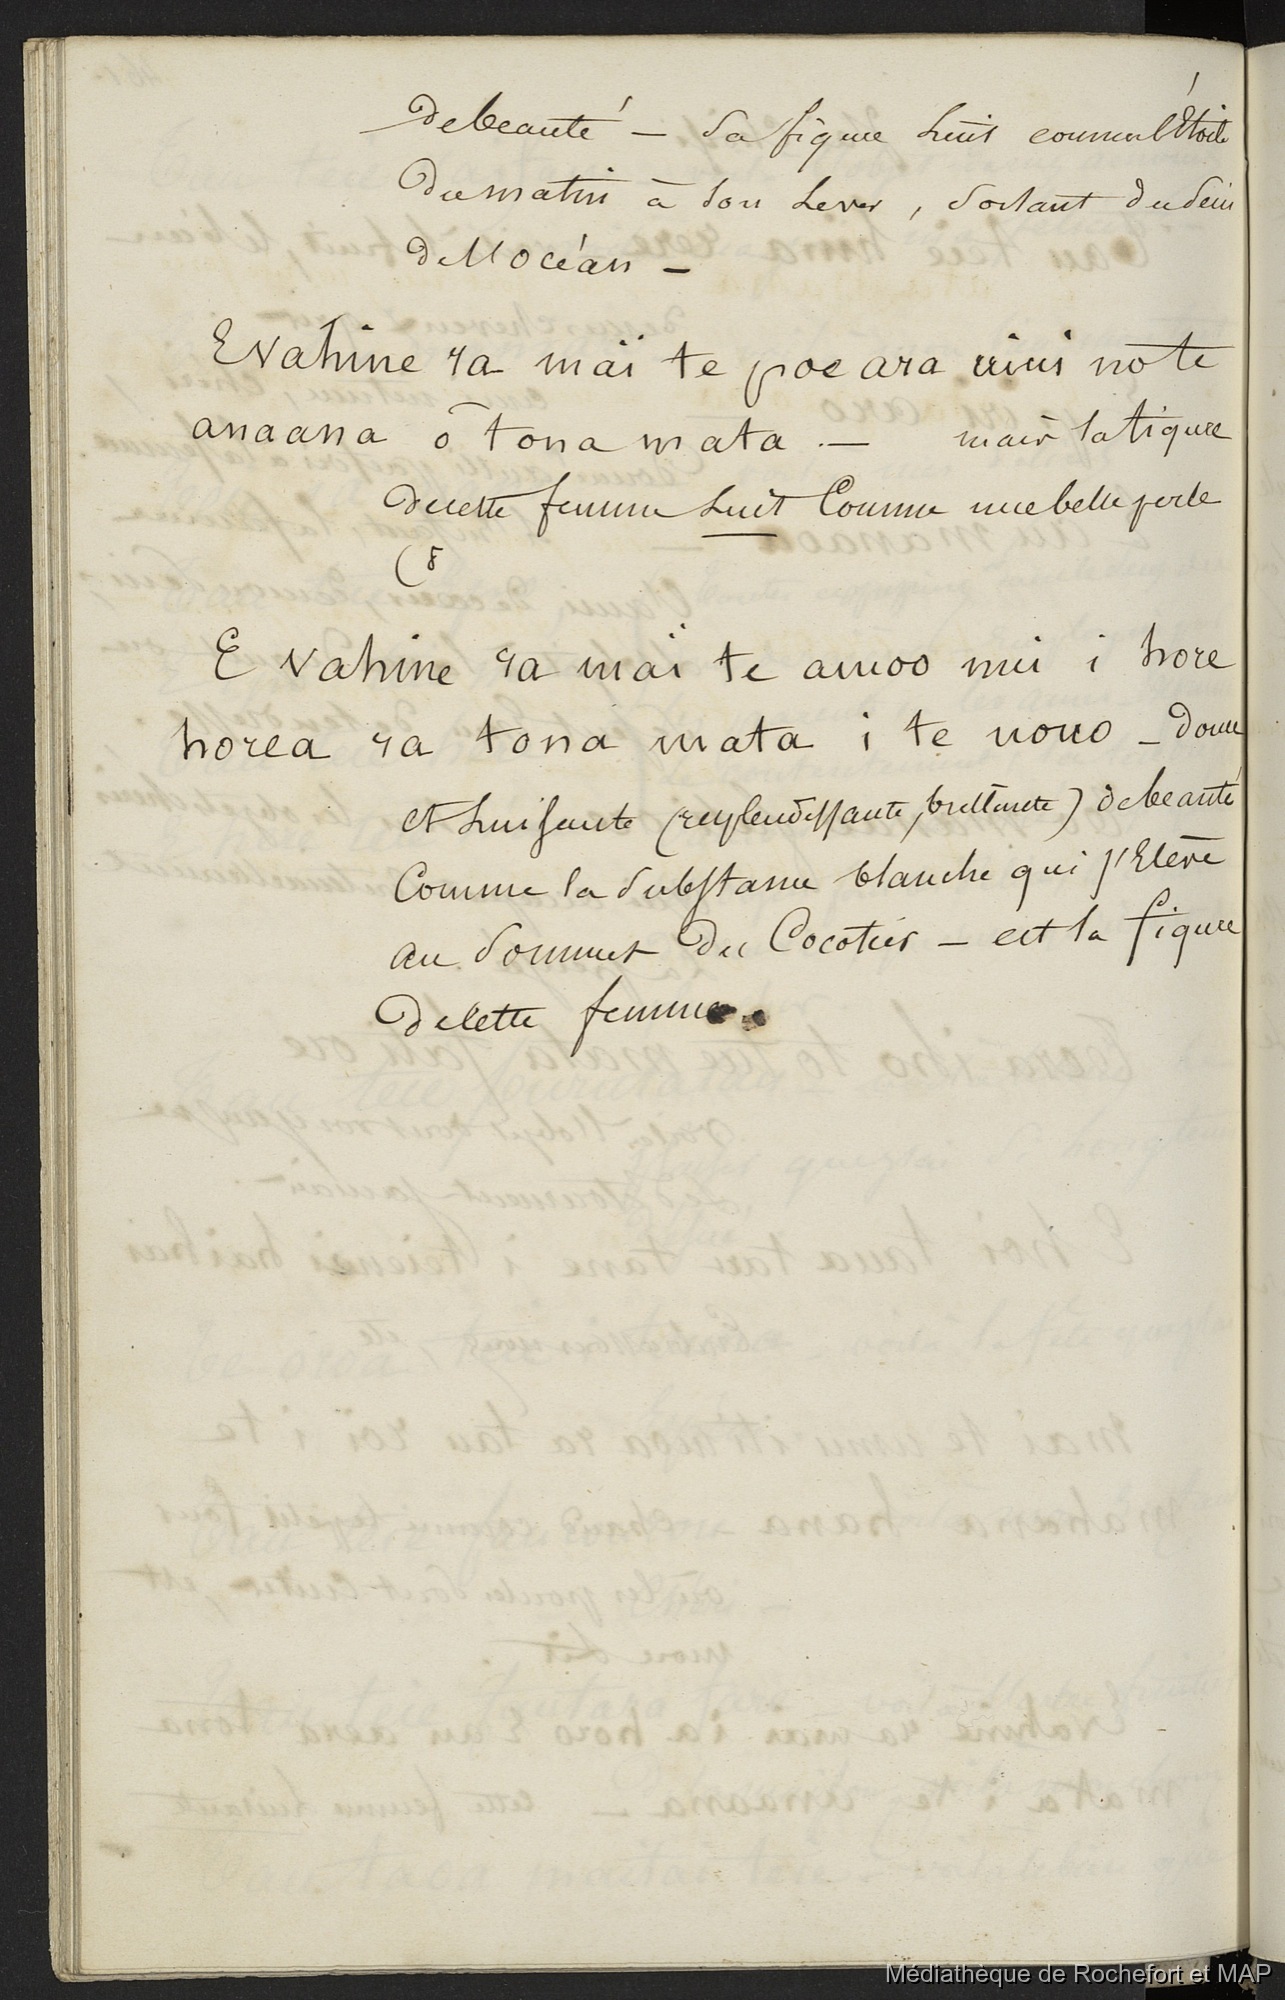 de beauté — sa figure luit comme l'Étoile
du matin à son Lever, sortant du sein
de l'océan —
E vahine ra mäi te poe ara riri no te
anaana o tona mata — mais la figure
de cette femme luit Comme une belle perle
(8
E vahine ra mäi te amoo mii i hore
horea ra tona mata i te nono — douce
et Luisante (resplendissante, brillante) de beauté
Comme la substance blanche qui s'Elève
au sommet du Cocotier — est la figure
de cette femme.
Médiathèque de Rochefort et MAP